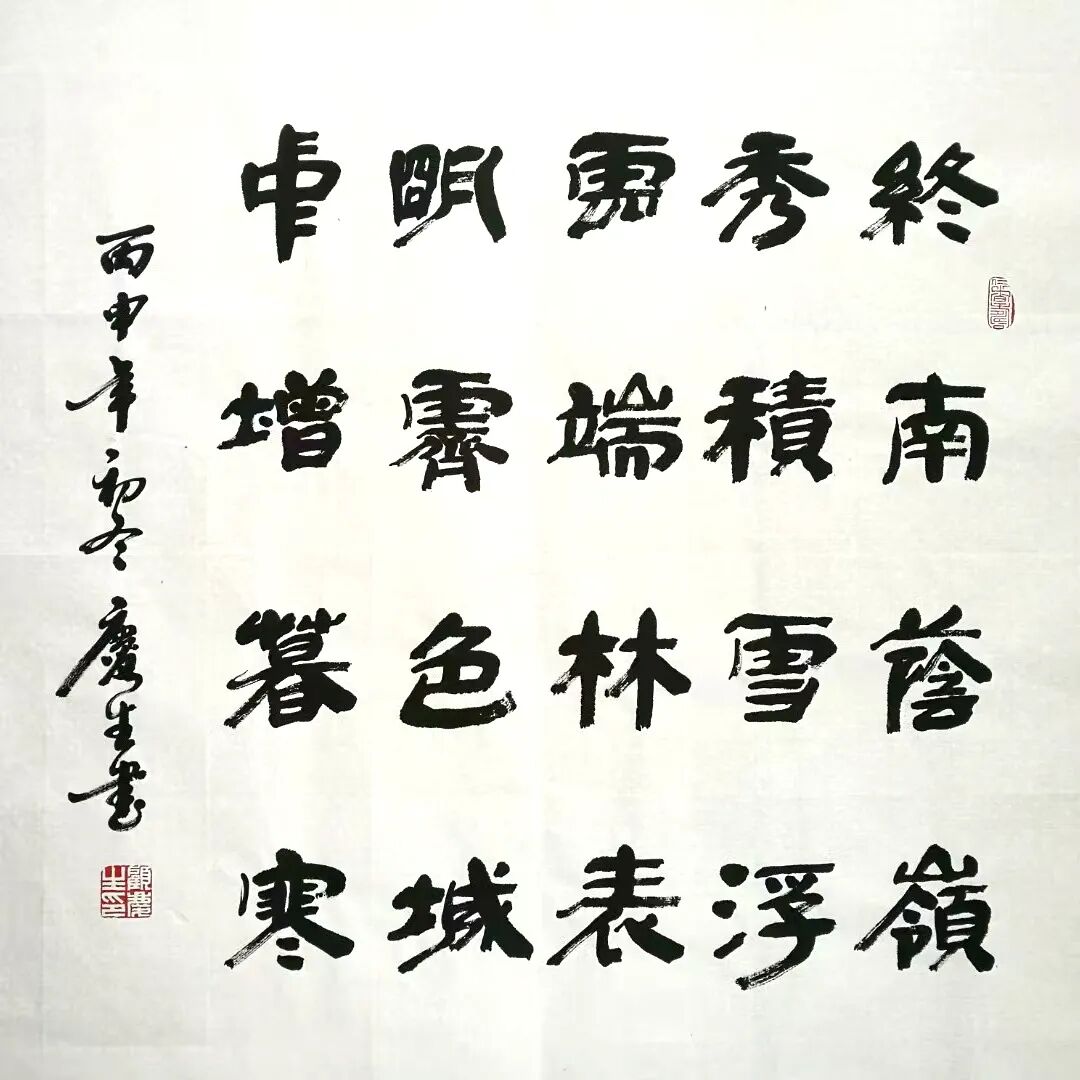 終南蔭嶺
秀積雪浮
雲端林表
明霽色城
中增暮寒
丙申年初冬慶生書
顧慶生印